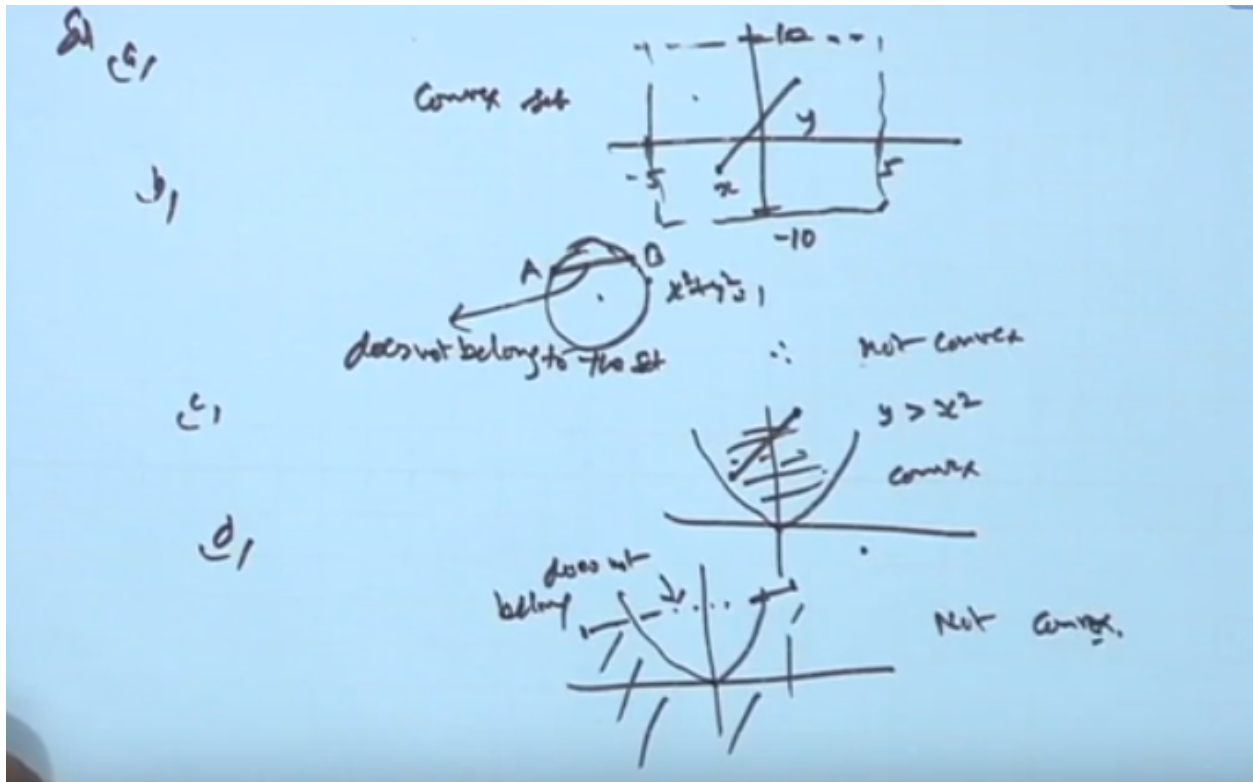 Sol
a,
10
Convex set
y
-5
x
5
-10
b,
A
B
x²+y²=1
does not belong to the set
∴ Not convex
c,
y > x²
convex
d,
does not
belong
Not convex.